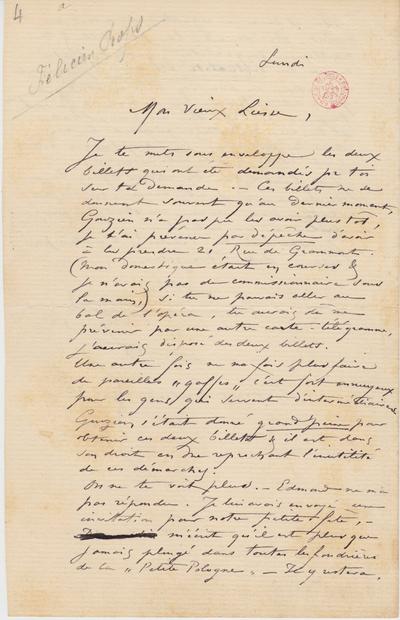 4
a
Félicien Rops
Lundi
Mon vieux Liesse,
Je te mets sous enveloppe les deux
billets qui ont été demandés pr toi
sur ta demande. — Ces billets ne se
donnent souvent qu'au dernier moment,
Gouzien n'a pas pu les avoir plus tôt,
je t'ai prévenu par dépêche d'avoir
à les prendre 21, Rue de Grammont.
(mon domestique était en courses &
je n'avais pas de commissionnaire sous
la main,) si tu ne pouvais aller au
bal de l'opéra, tu aurais dû me
prévenir par une autre carte-télégramme,
j'aurais disposé des deux billets.
Une autre fois ne me fais plus faire
de pareilles „gaffes" c'est fort ennuyeux
pour les gens qui servent d'intermédiaires
Gouzien s'était donné grand peine pour
obtenir ces deux billets & il est dans
son droit en me reprochant l'inutilité
de ces démarches.
On ne te voit plus. — Edmond ne m'a
pas répondu. Je lui avais envoyé une
invitation pour notre petite fête, —
m'écrit qu'il est plus que
jamais plongé dans toutes les fondrières
de la „Petite Pologne" — Il y restera,